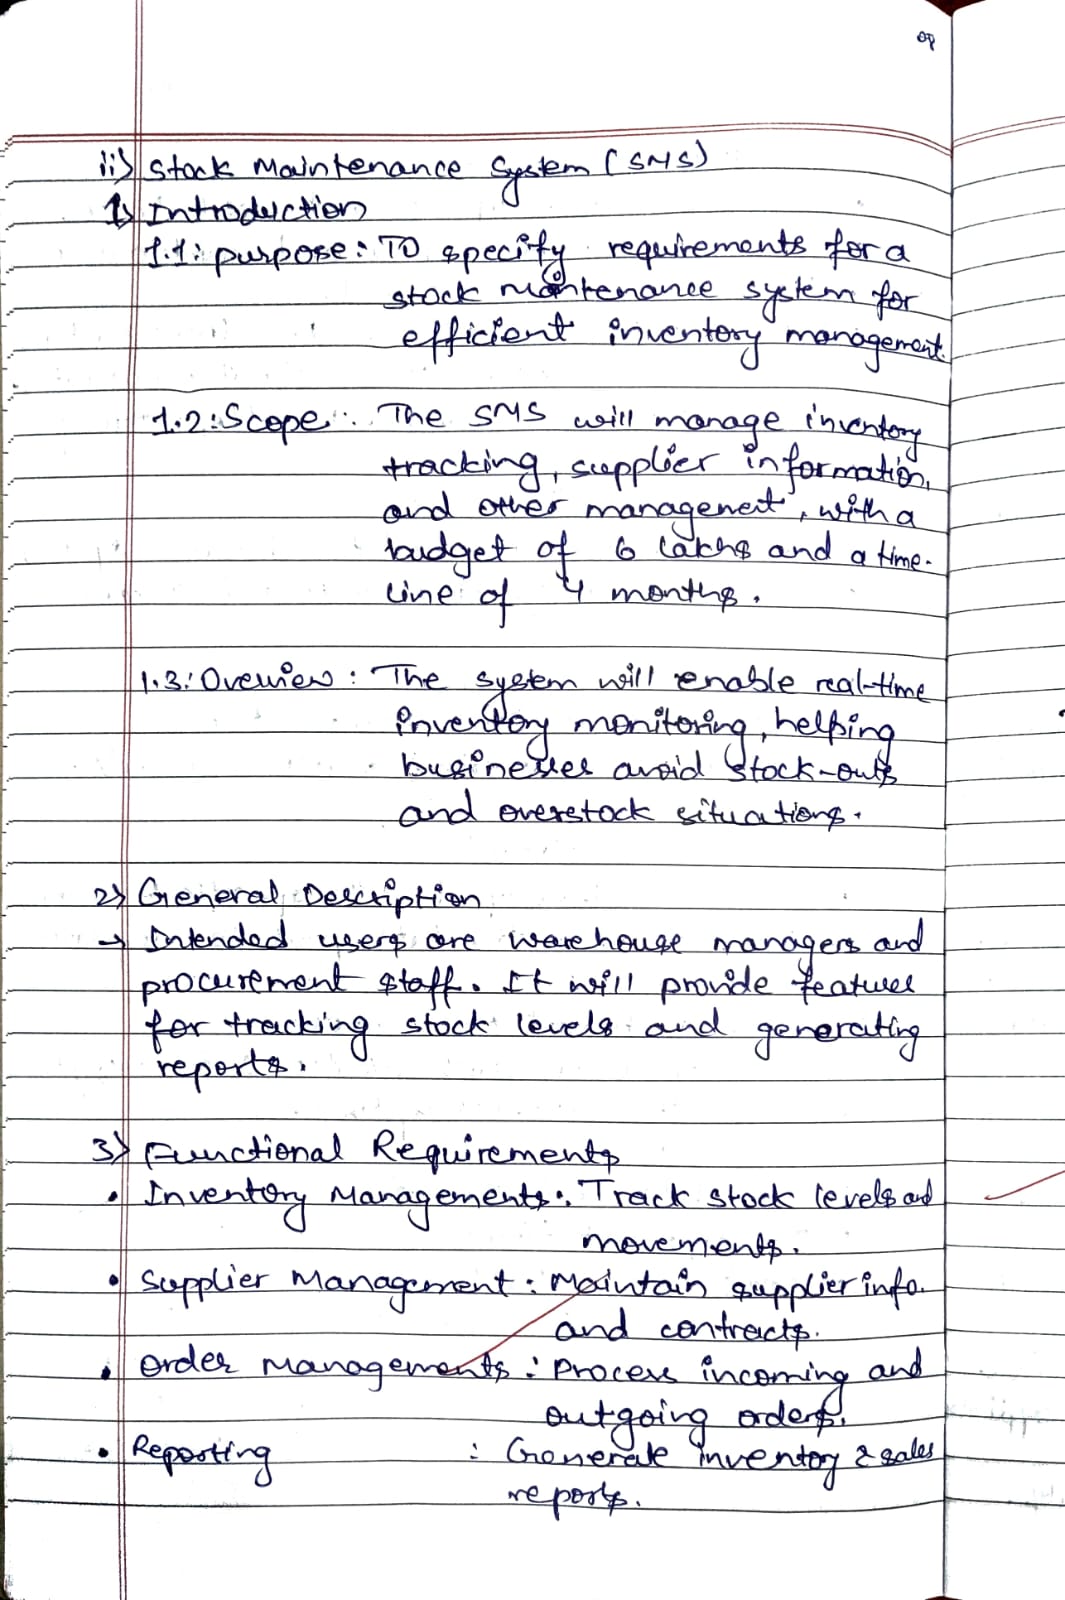 ii) Stock Maintenance System (SMS)
1) Introduction
1.1: purpose: To specify requirements for a
stock maintenance system for
efficient inventory management.
1.2: Scope: The SMS will manage inventory
tracking, supplier information,
and other management, with a
budget of 6 lakhs and a time-
line of 4 months.
1.3: Overview: The system will enable real-time
inventory monitoring, helping
businesses avoid stock-outs
and overstock situations.
2) General Description
→ Intended users are warehouse managers and
procurement staff. It will provide features
for tracking stock levels and generating
reports.
3) Functional Requirements
• Inventory Managements: Track stock levels and
movements.
• Supplier Management: Maintain supplier info.
and contracts.
• Order Managements: Process incoming and
outgoing orders.
• Reporting : Generate inventory & sales
reports.